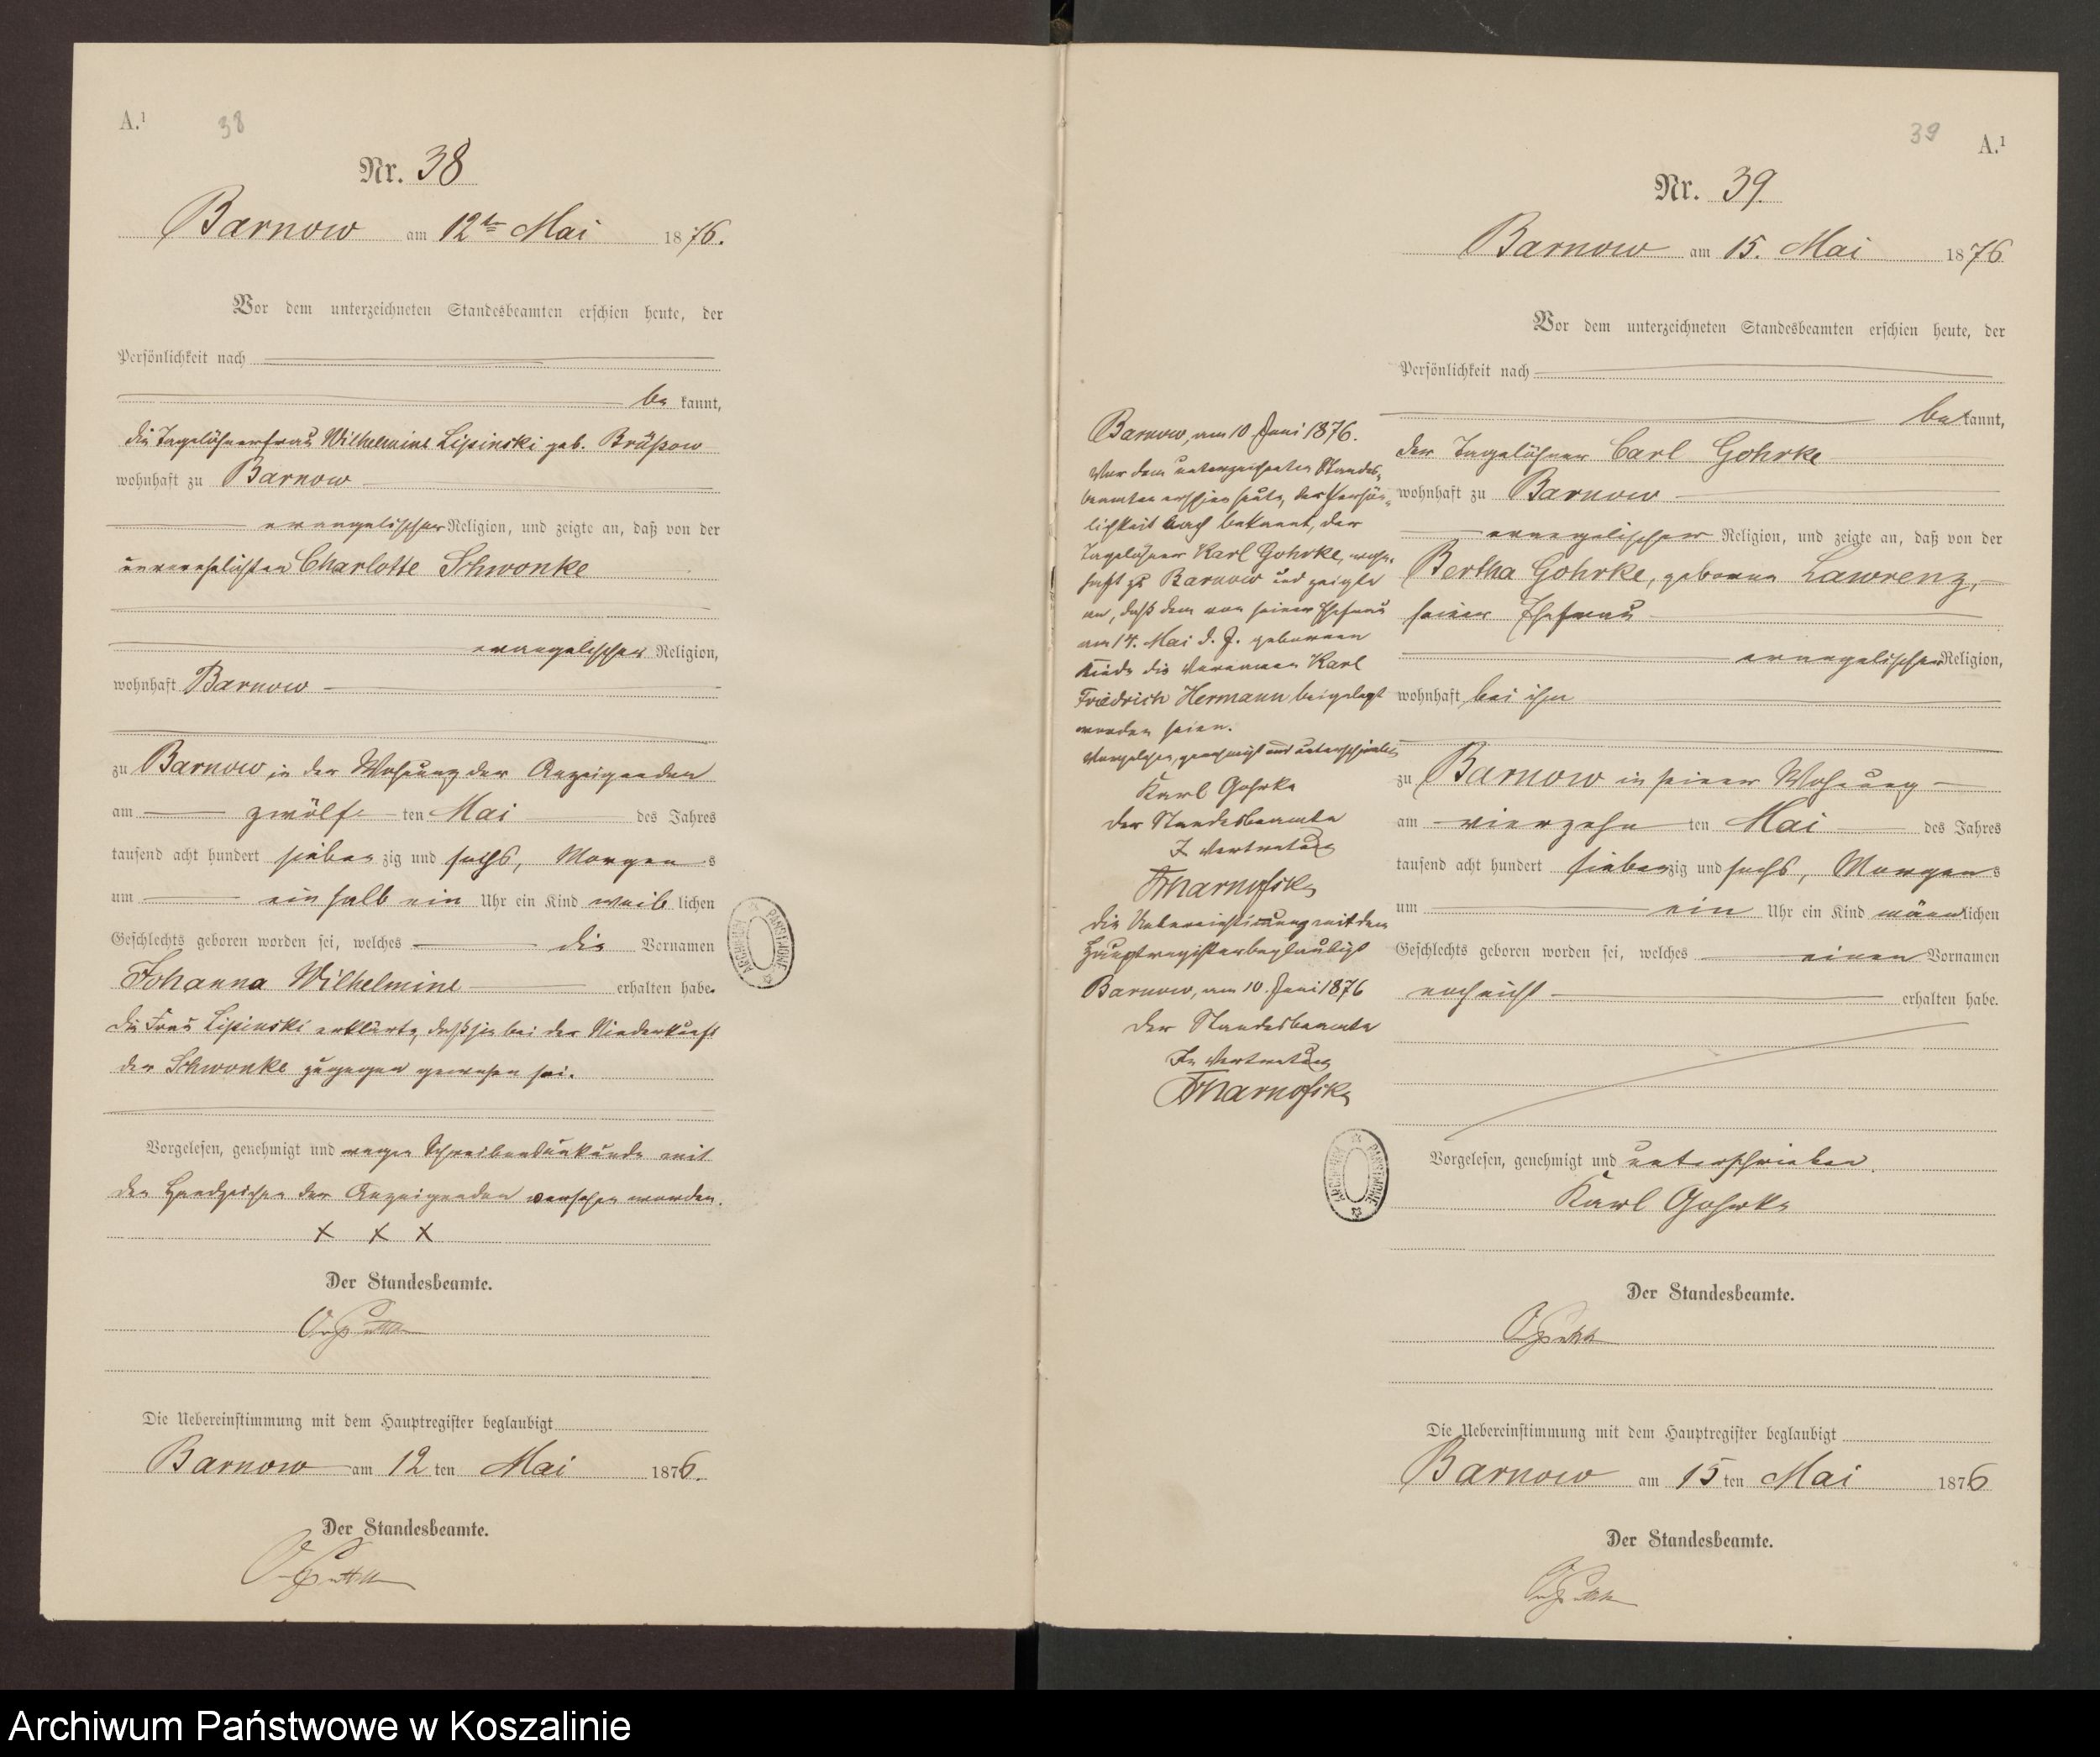 A.¹ 38
Nr. 38
Barnow am 12ten Mai 1876.
Vor dem unterzeichneten Standesbeamten erschien heute, der
Persönlichkeit nach
be kannt,
die Tagelöhnerfrau Wilhelmine Lipinski geb.
wohnhaft zu Barnow
evangelischer Religion, und zeigte an, daß von der
unverehelichten Charlotte Schwonke
evangelischer Religion,
wohnhaft Barnow
zu Barnow in der Wohnung der Anzeigenden
am zwölf ten Mai des Jahres
tausend acht hundert sieben zig und sechs, Morgen s
um ein halb ein Uhr ein Kind weib lichen
Geschlechts geboren worden sei, welches die Vornamen
Johanna Wilhelmine erhalten habe.
Die Frau Lipinski erklärte, daß sie bei der Niederkunft
der Schwonke zugegen gewesen sei.
Vorgelesen, genehmigt und wegen Schreibensunkunde mit
den Handzeichen der Anzeigenden versehen worden.
x x x
Der Standesbeamte.
Die Uebereinstimmung mit dem Hauptregister beglaubigt
Barnow am 12 ten Mai 1876.
Der Standesbeamte.
ARCHIWUM PAŃSTWOWE
39 A.¹
Nr. 39.
Barnow am 15. Mai 1876
Vor dem unterzeichneten Standesbeamten erschien heute, der
Persönlichkeit nach
be kannt,
der Tagelöhner Carl Gohrke
wohnhaft zu Barnow
evangelischer Religion, und zeigte an, daß von der
Bertha Gohrke, geborne Lawrenz,
seiner Ehefrau
evangelischer Religion,
wohnhaft bei ihm
zu Barnow in seiner Wohnung
am vierzehn ten Mai des Jahres
tausend acht hundert sieben zig und sechs, Morgen s
um ein Uhr ein Kind männ lichen
Geschlechts geboren worden sei, welches einen Vornamen
noch nicht erhalten habe.
Vorgelesen, genehmigt und unterschrieben.
Karl Gohrke
Der Standesbeamte.
Die Uebereinstimmung mit dem Hauptregister beglaubigt
Barnow am 15 ten Mai 1876
Der Standesbeamte.
Barnow, am 10 Juni 1876.
Vor dem unterzeichneten Standes-
beamten erschien heute, der Persön-
lichkeit nach bekannt, der
Tagelöhner Karl Gohrke, wohn-
haft zu Barnow und zeigte
an, daß dem von seiner Ehefrau
am 14. Mai d. J. geborenen
Kinde die Vornamen Karl
Friedrich Hermann beigelegt
worden seien.
Vorgelesen, genehmigt und unterschrieben
Karl Gohrke
Der Standesbeamte
In Vertretung
Die Uebereinstimmung mit dem
Hauptregister beglaubigt
Barnow, am 10. Juni 1876
Der Standesbeamte
In Vertretung
ARCHIWUM PAŃSTWOWE
Archiwum Państwowe w Koszalinie